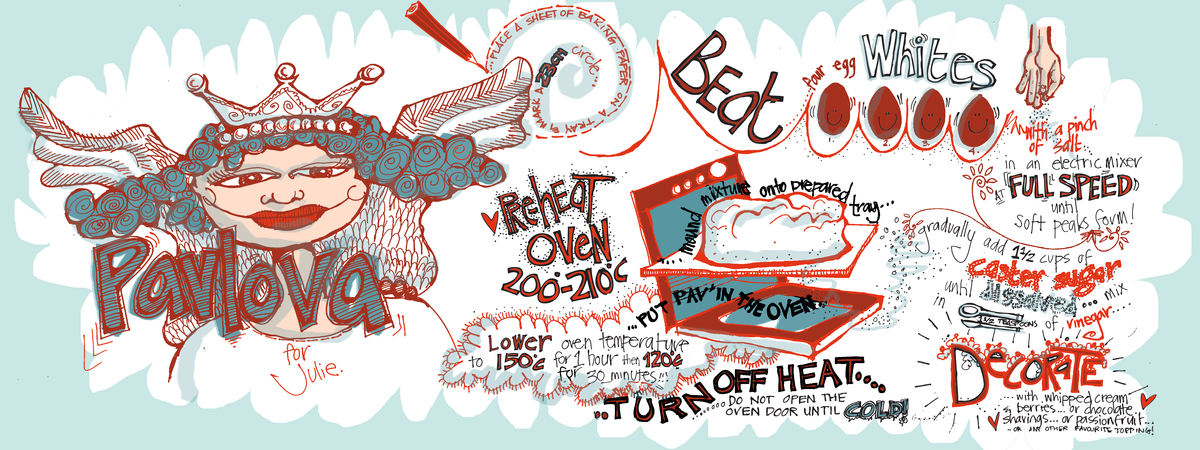 Pavlova
for
Julie.
...PLACE A SHEET OF BAKING PAPER ON A TRAY & MARK A 23cm circle...
PReheAT
OVeN
200-210°C
BEat
four egg Whites
1. 2. 3. 4.
with a pinch
of salt...
in an electric mixer
AT "FULL SPEED"
until
soft peaks form!
gradually add 1 1/2 cups of
caster sugar
until dissolved... mix
in 1 1/2 TEASPOONS of vinegar.
....mound mixture onto prepared tray...
...PUT PAV' IN THE OVEN...
LOWER oven temperature
to 150°c for 1 hour then 120°c
for 30 minutes!!!
..TURN OFF HEAT....
......DO NOT OPEN THE
OVEN DOOR UNTIL COLD!
DeCORATE
...with whipped cream
& berries... or chocolate
shavings... or passionfruit...
~ OR ANY OTHER FAVOURITE TOPPING!